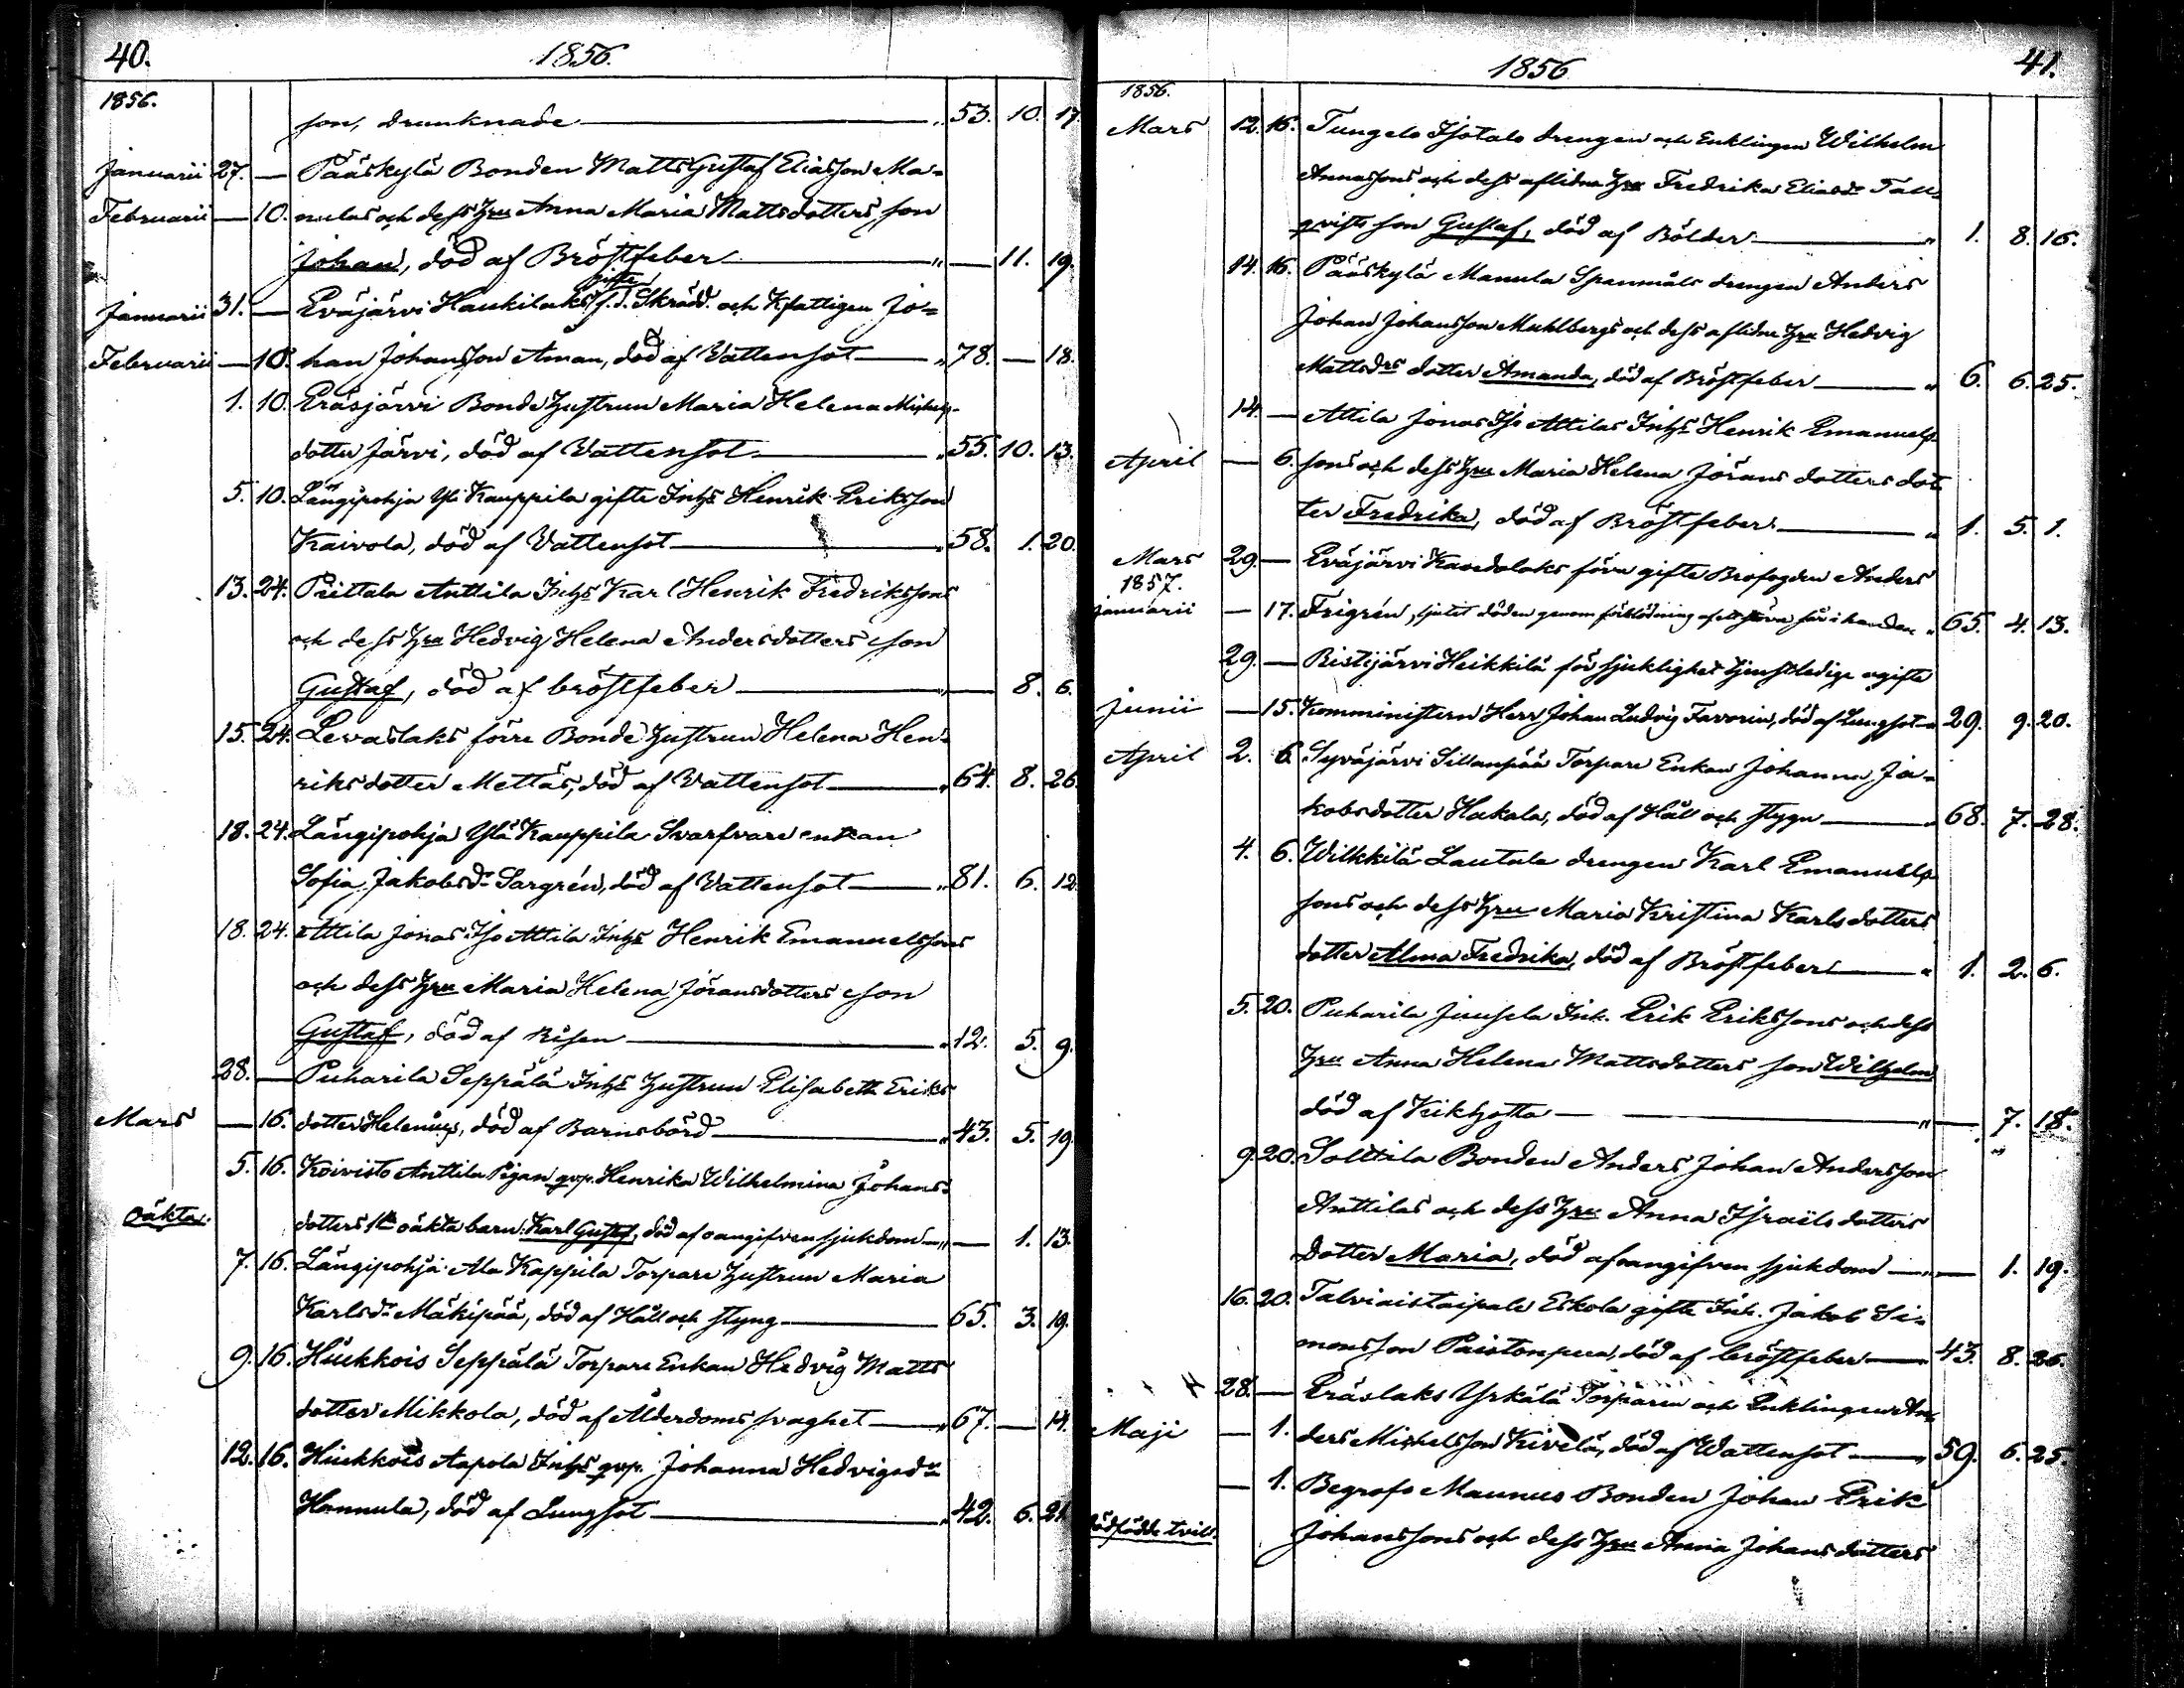 40. 1856.
1856.
son, drunknade „ 53. 10. 17.
Januarii 27. — Pääskylä Bonden Matts Gustaf Eliasson Ma-
Februarii — 10. nulas och dess Hru Anna Maria Mattsdotters son
Johan, död af Bröstfeber „ — 11. 19.
gifte
Januarii 31. — Eväjärvi Haukilaks f.d. Skrädd. och Kfattigen Jo-
Februarii — 10. han Johansson Aman, död af Vattensot „ 78. — 18.
1. 10. Eräsjärvi Bonde Hustrun Maria Helena Michels-
dotter Järvi, död af Vattensot „ 55. 10. 13.
5. 10. Längipohja Yli Kauppila gifte Inhs Henrik Eriksson
Kaivola, död af Vattensot „ 58. 1. 20.
13. 24. Peittala Anttila Inhs Karl Henrik Fredrikssons
och dess Hru Hedvig Helena Andersdotters son
Gustaf, död af bröstfeber „ — 8. 6.
15. 24. Levaslaks förre Bonde Hustrun Helena Hen-
riksdotter Mettäs, död af Vattensot „ 64. 8. 26.
18. 24. Längipohja Ylä Kauppila Svarfvare enkan
Sofia Jakobsdr Sargrén, död af Vattensot „ 81. 6. 12.
18. 24. Attila Jonas Iso Attila Inhs Henrik Emanuelssons
och dess Hru Maria Helena Jöransdotters son
Gustaf, död af Risen „ 12. 5. 9.
28. — Puharila Seppälä Inhs Hustrun Elisabeth Eriks
Mars — 16. dotter Helenius, död af Barnsbörd „ 43. 5. 19.
5. 16. Koivisto Anttila Pigan qvp. Henrika Wilhelmina Johans-
oäkta. dotters 1sta oäkta barn: Karl Gustaf, död af oangifven sjukdom „ — 1. 13.
7. 16. Längipohja Ala Kappila Torpare Hustrun Maria
Karlsdr Mäkipää, död af Håll och styng 65. 3. 19.
9. 16. Hiukkois Seppälä Torpare Enkan Hedvig Matts
dotter Mikkola, död af Ålderdoms svaghet „ 67. — 14.
12. 16. Hiukkois Aapola Inhs qvp. Johanna Hedvigsdr
Hannula, död af Lungsot „ 42. 6. 21.
1856 41.
1856.
Mars 12. 16. Tungelo Isotalo drengen och Enklingen Wilhelm
Annassons och dess aflidna Hru Fredrika Eliasdr Tall-
qvists son Gustaf, död af Bölder „ 1. 8. 16.
14. 16. Pääskylä Manula Spanmåls drengen Anders
Johan Johansson Muhlbergs och dess aflidna Hru Hedvig
Mattsdrs dotter Amanda, död af Bröstfeber „ 6. 6. 25.
14. — Attila Jonas Iso Attilas Inhs Henrik Emanuels
April — 6. sons och dess Hru Maria Helena Jörans dotters dot
ter Fredrika, död af Bröstfeber „ 1. 5. 1.
Mars 29. — Eväjärvi förre gifte Brofogden Anders
1857.
Januarii — 17. Frigrén, ljutit döden genom förblödning af ett större sår i handen „ 65. 4. 13.
29. — Ristijärvi Heikkilä för sjuklighet tjenstledige ogifte
Junii — 15. Komministern Herr Johan Ludvig Favorin, död af Lungsot „ 29. 9. 20.
April 2. 6. Syväjärvi Sillanpää Torpare Enkan Johanna Ja-
kobsdotter Hakala, död af Håll och styng „ 68. 7. 28.
4. 6. Wilkkilä Lautala drengen Karl Emanuels
sons och dess Hru Maria Kristina Karlsdotters
dotter Alma Fredrika, död af Bröstfeber „ 1. 2. 6.
5. 20. Puharila Juusela Inh. Erik Erikssons och dess
Hru Anna Helena Mattsdotters son Wilhelm
död af Kikhosta „ — 7. 18.
9. 20. Solttila Bonden Anders Johan Andersson
Anttilas och dess Hru Anna Israëls dotters
Dotter Maria, död af oangifven sjukdom „ — 1. 19.
16. 20. Talviaistaipale Eskola gifte Inh. Jakob Si-
monsson död af bröstfeber „ 43. 8. 26.
28. — Eräslaks Yrkälä Torparen och Enklingen An-
Maji — 1. ders Michelsson Kivelä, död af Wattensot „ 59. 6. 25.
— 1. Begrofs Maunus Bonden Johan Erik
dödfödde tvill. Johanssons och dess Hru Anna Johansdotters